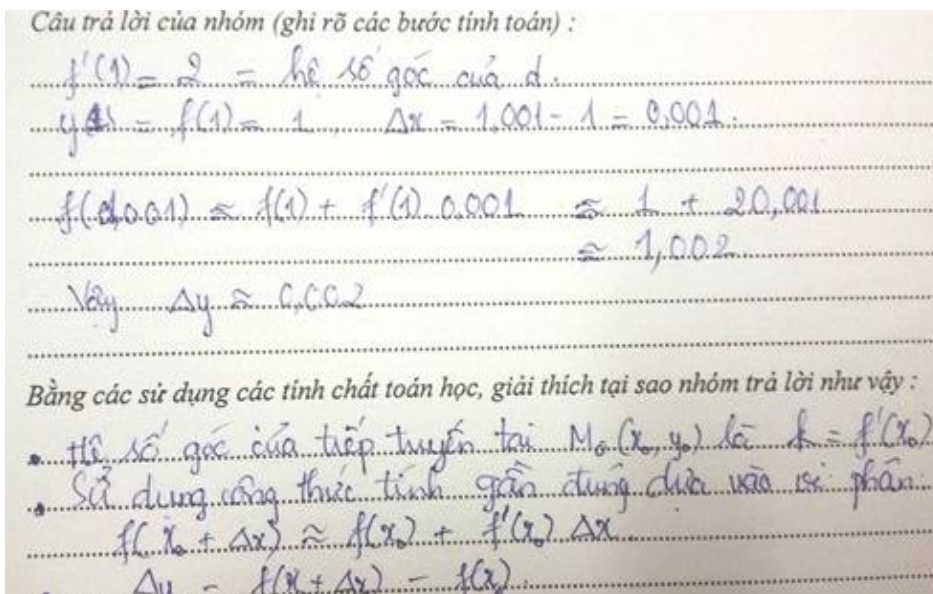 Câu trả lời của nhóm (ghi rõ các bước tính toán) :
f'(1) = 2 = hệ số góc của d.
= f(1) = 1, Δx = 1,001 - 1 = 0,001.
f(1,001) ≈ f(1) + f'(1) 0.001 ≈ 1 + 20,001
≈ 1,002
Vậy Δy ≈ 0,002
Bằng các sử dụng các tính chất toán học, giải thích tại sao nhóm trả lời như vậy :
• Hệ số góc của tiếp tuyến tại M₀(x₀, y₀) là k = f'(x₀)
• Sử dụng công thức tính gần đúng dựa vào vi phân:
f(x₀ + Δx) ≈ f(x₀) + f'(x₀) Δx
Δy = f(x + Δx) - f(x).